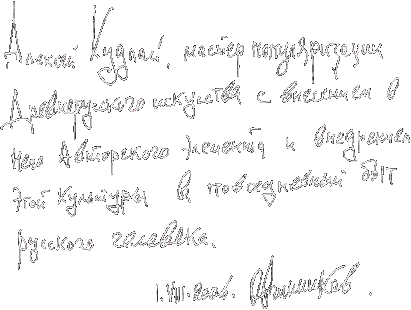 Алексей Кудлай, мастер популяризации
Древнерусского искусства с внесением в
него Авторского элемента и внедрением
этой культуры в повседневный быт
русского человека.
1.VIII.2006.